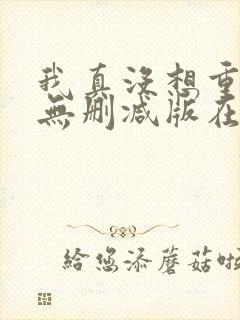 我真沒想重
無刪减版在
給您添蘑菇啦